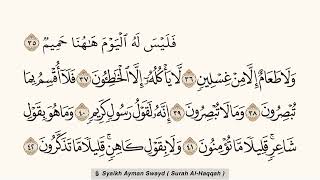 فَلَيْسَ لَهُ الْيَوْمَ هَاهُنَا حَمِيمٌ ٣٥
وَلَا طَعَامٌ إِلَّا مِنْ غِسْلِينٍ ٣٦ لَّا يَأْكُلُهُ إِلَّا الْخَاطِئُونَ ٣٧ فَلَا أُقْسِمُ بِمَا
تُبْصِرُونَ ٣٨ وَمَا لَا تُبْصِرُونَ ٣٩ إِنَّهُ لَقَوْلُ رَسُولٍ كَرِيمٍ ٤٠ وَمَا هُوَ بِقَوْلِ
شَاعِرٍ قَلِيلًا مَّا تُؤْمِنُونَ ٤١ وَلَا بِقَوْلِ كَاهِنٍ قَلِيلًا مَّا تَذَكَّرُونَ ٤٢
Syaikh Ayman Swayd ( Surah Al-Haqqah )